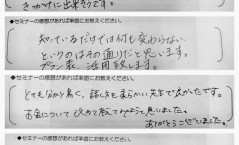 きっかけに出来そうです。
◆セミナーの感想があれば率直にお教えください。
知っているだけでは何も変わらない
というのはその通りだと思います。
プラン表、活用致します。
◆セミナーの感想があれば率直にお教えください。
とても分かり易く、話し方も柔らかい先生で良かったです。
お金について改めて教えてもらおうと思いました。
ありがとうございました。
◆セミナーの感想があれば率直にお教えください。